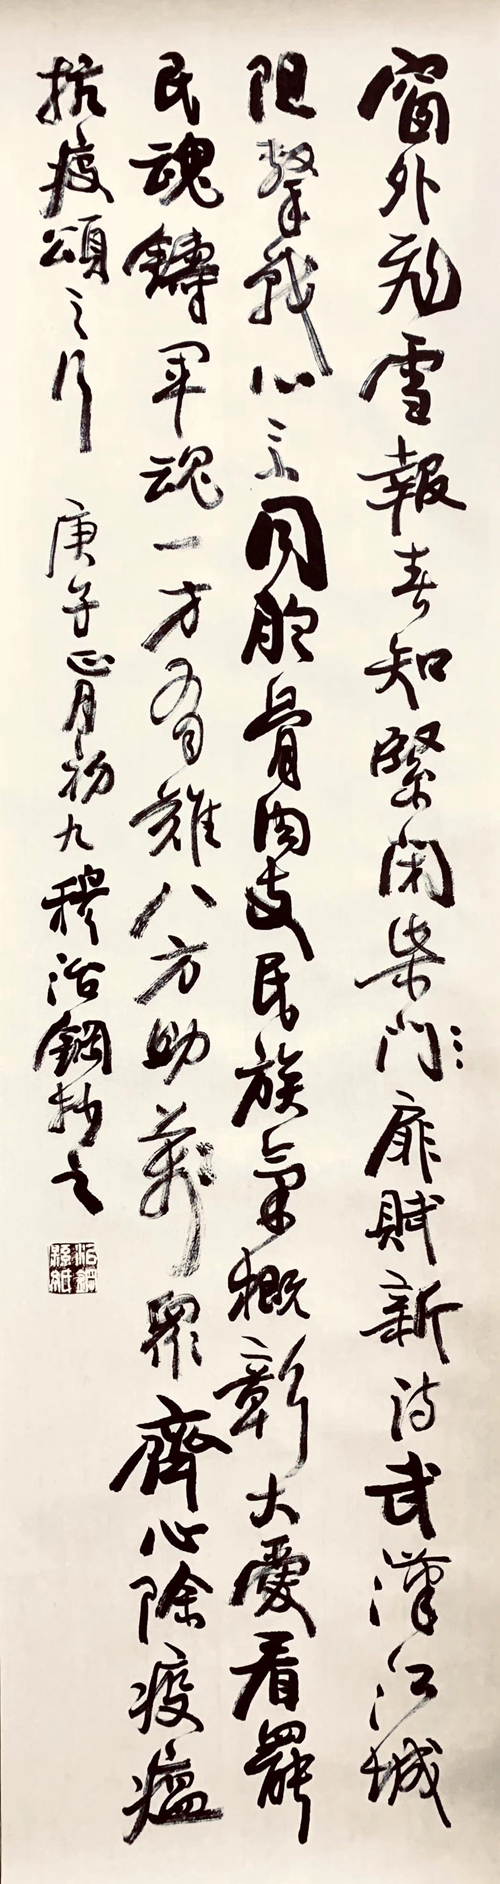 窗外飛雪報春知緊閉柴門扉賦新詩武漢江城
阻擊戰心系同胞骨肉支民族氣概彰大愛看罷
民魂鑄軍魂一方有難八方助萬眾齊心除疫瘟
抗疫頌之 庚子正月初九穆治鋼抄之